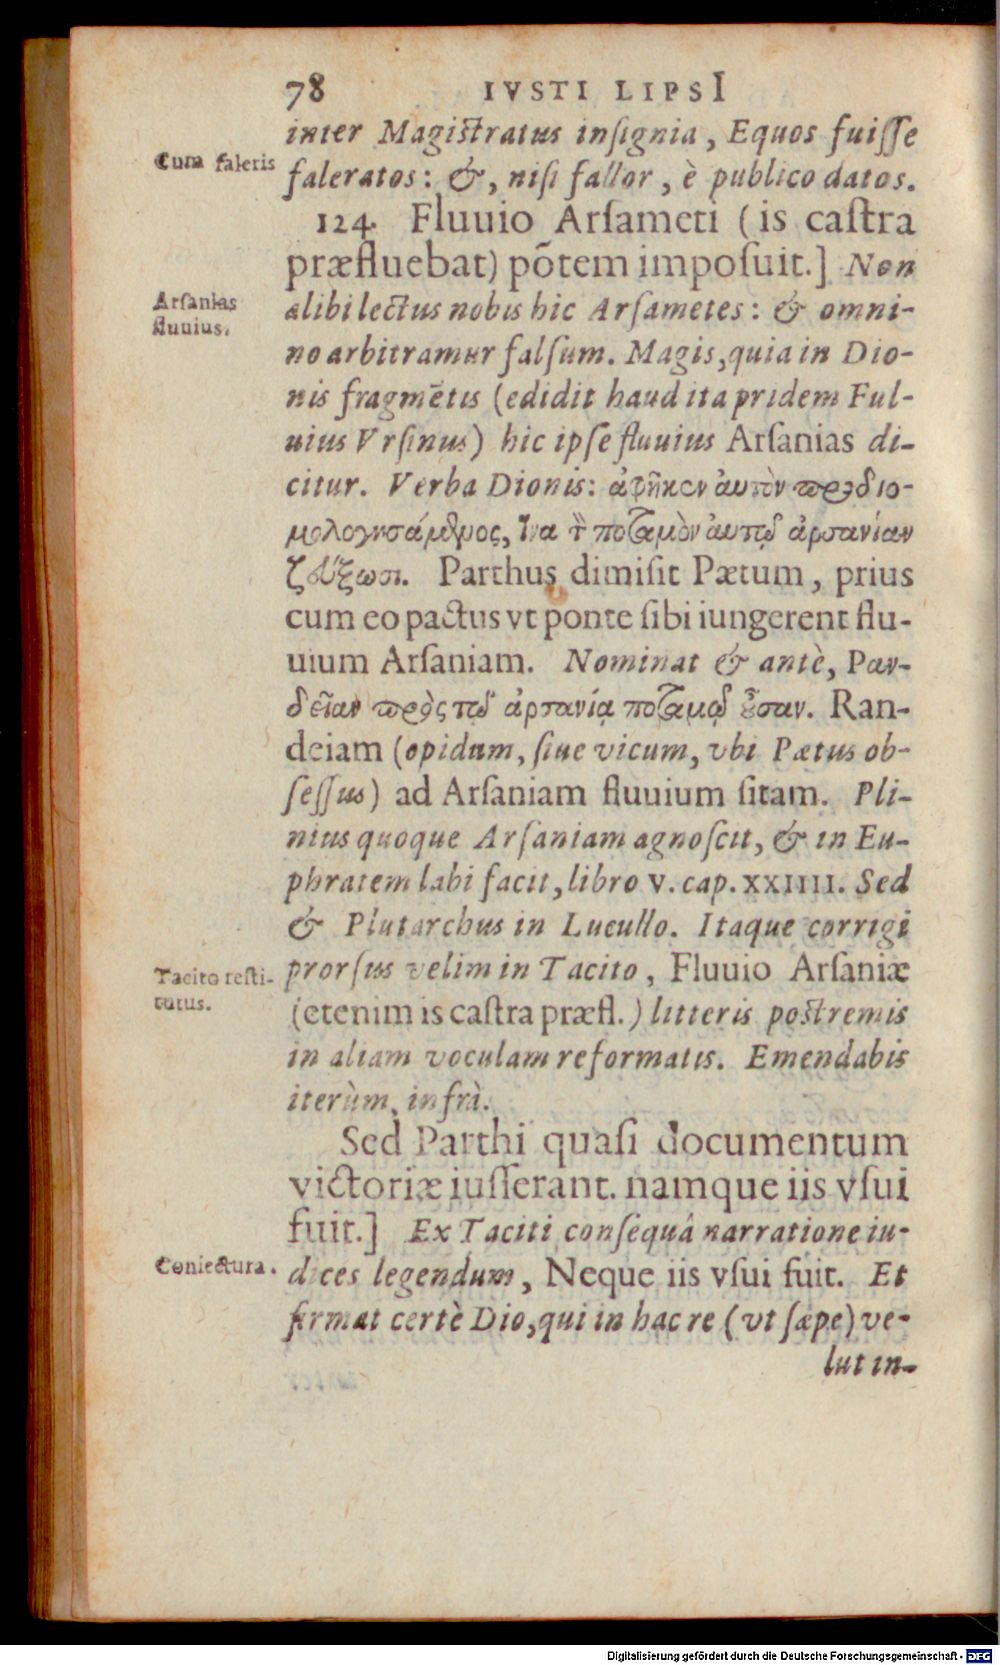 78 IVSTI LIPSI
inter Magistratus insignia, Equos fuisse
Cum faleris
faleratos: &, nisi fallor, è publico datos.
124. Fluuio Arsameti (is castra
præfluebat) põtem imposuit.] Non
Arsanias
fluuius.
alibi lectus nobis hic Arsametes: & omni-
no arbitramur falsum. Magis, quia in Dio-
nis fragmẽtis (edidit haud ita pridem Ful-
uius Vrsinus) hic ipse fluuius Arsanias di-
citur. Verba Dionis: ἀφῆκεν ἀυτὸν προδιο-
μολογησάμενος, ἵνα τὸν ποταμὸν ἀυτῷ ἀρσανίαν
ζεύξωσι. Parthus dimisit Pætum, prius
cum eo pactus vt ponte sibi iungerent flu-
uium Arsaniam. Nominat & antè, Ραν-
δεῖαν πρὸς τῷ ἀρσανίᾳ ποταμῷ οὖσαν. Ran-
deiam (opidum, siue vicum, vbi Pætus ob-
sessus) ad Arsaniam fluuium sitam. Pli-
nius quoque Arsaniam agnoscit, & in Eu-
phratem labi facit, libro V. cap. XXIIII. Sed
& Plutarchus in Lucullo. Itaque corrigi
Tacito resti-
tutus.
prorsus velim in Tacito, Fluuio Arsaniæ
(etenim is castra præfl.) litteris postremis
in aliam voculam reformatis. Emendabis
iterùm, infrà.
Sed Parthi quasi documentum
victoriæ iusserant. namque iis vsui
fuit.] Ex Taciti consequâ narratione iu-
Coniectura.
dices legendum, Neque iis vsui fuit. Et
firmat certè Dio, qui in hac re (vt sæpe) ve-
lut in-
Digitalisierung gefördert durch die Deutsche Forschungsgemeinschaft - DFG